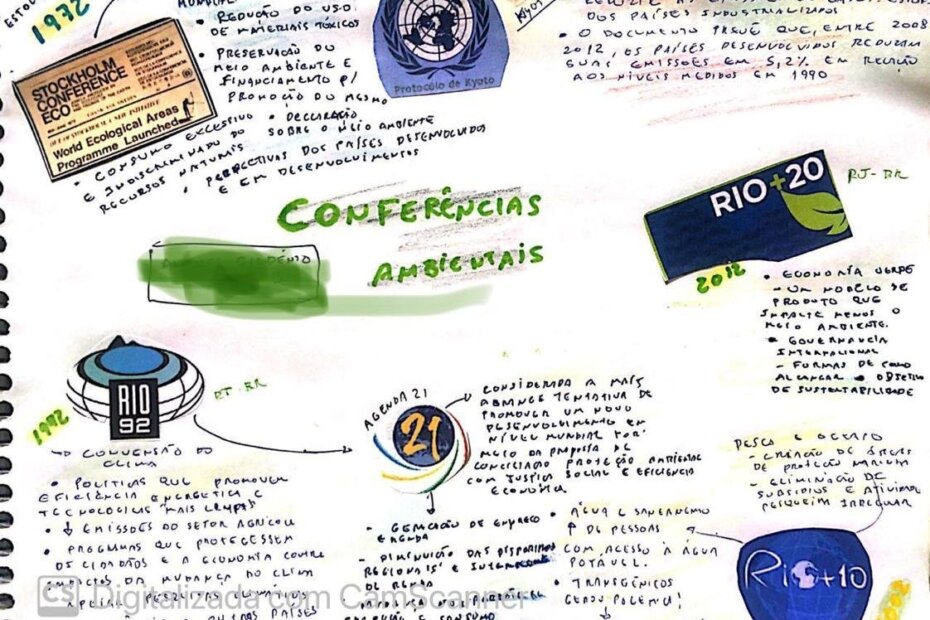 1972
STOCKHOLM
CONFERENCE
ECO
World Ecological Areas
Programme Launched
• REDUÇÃO DO USO
DE MATERIAIS TÓXICOS
• PRESERVAÇÃO DO
MEIO AMBIENTE E
FINANCIAMENTO P/
PROMOÇÃO DO MESMO
• CONSUMO EXCESSIVO
E INDISCRIMINADO DO
RECURSOS NATURAIS
• DECLARAÇÃO
SOBRE O MEIO AMBIENTE
• PERPECTIVAS DOS PAÍSES DESENVOLVIDOS
E EM DESENVOLVIMENTOS
Protocolo de Kyoto
DOS PAÍSES INDUSTRIALIZADOS
• O DOCUMENTO PREVÊ QUE, ENTRE 2008
2012, OS PAÍSES DESENVOLVIDOS REDUZAM
SUAS EMISSÕES EM 5,2% EM RELAÇÃO
AOS NÍVEIS MEDIDOS EM 1990
CONFERÊNCIAS
AMBIENTAIS
RIO+20
RJ-BR
2012
• ECONOMIA VERDE
- UM MODELO DE
PRODUTO QUE
IMPACTE MENOS O
MEIO AMBIENTE.
• GOVERNANCIA
INTERNACIONAL
- FORMAS DE COMO
ALCANÇAR O OBJETIVO
DE SUSTENTABILIDADE
RIO
92
RJ-BR
1992
→ CONVENSÃO DO
CLIMA
• POLITICAS QUE PROMOVEM
EFICIÊNCIA ENERGETICA E
TECNOLOGIAS MAIS LIMPAS
• ↓ EMISSÕES DO SETOR AGRICOLA
• PROGRAMAS QUE PROTEGESSEM
OS CIDADÃOS E A ECONOMIA CONTRA
IMPACTOS DA MUDANÇA DO CLIMA
AGENDA 21
21
CONSIDERADA A MAIS
ABRANGE TENTATIVA DE
PROMOVER UM NOVO
DESENVOLVIMENTO EM
NÍVEL MUNDIAL POR
MEIO DA PROPOSTA DE
CONCILIADO PROTEÇÃO AMBIENTAL
COM JUSTIÇA SOCIAL E EFICIENCIA
ECONÔMICA
• GERAÇÃO DE EMPREGO
E RENDA
- DIMINUIÇÃO DAS DISPARIDADES
REGIONAIS E
DE RENDA
E CONSUMO
• ÁGUA E SANEAMENTO
↑ DE PESSOAS
COM ACESSO À ÁGUA
POTÁVEL.
• TRANSGÊNICOS
GEROU POLEMICA!
PESCA E OCEANO
- CRIAÇÃO DE ÁREAS
DE PROTEÇÃO MARINHA
- ELIMINAÇÃO DE
SUBSIDIOS E ATIVIDADE
PESQUEIRA IRREGULAR
Rio+10
CS Digitalizada com CamScanner